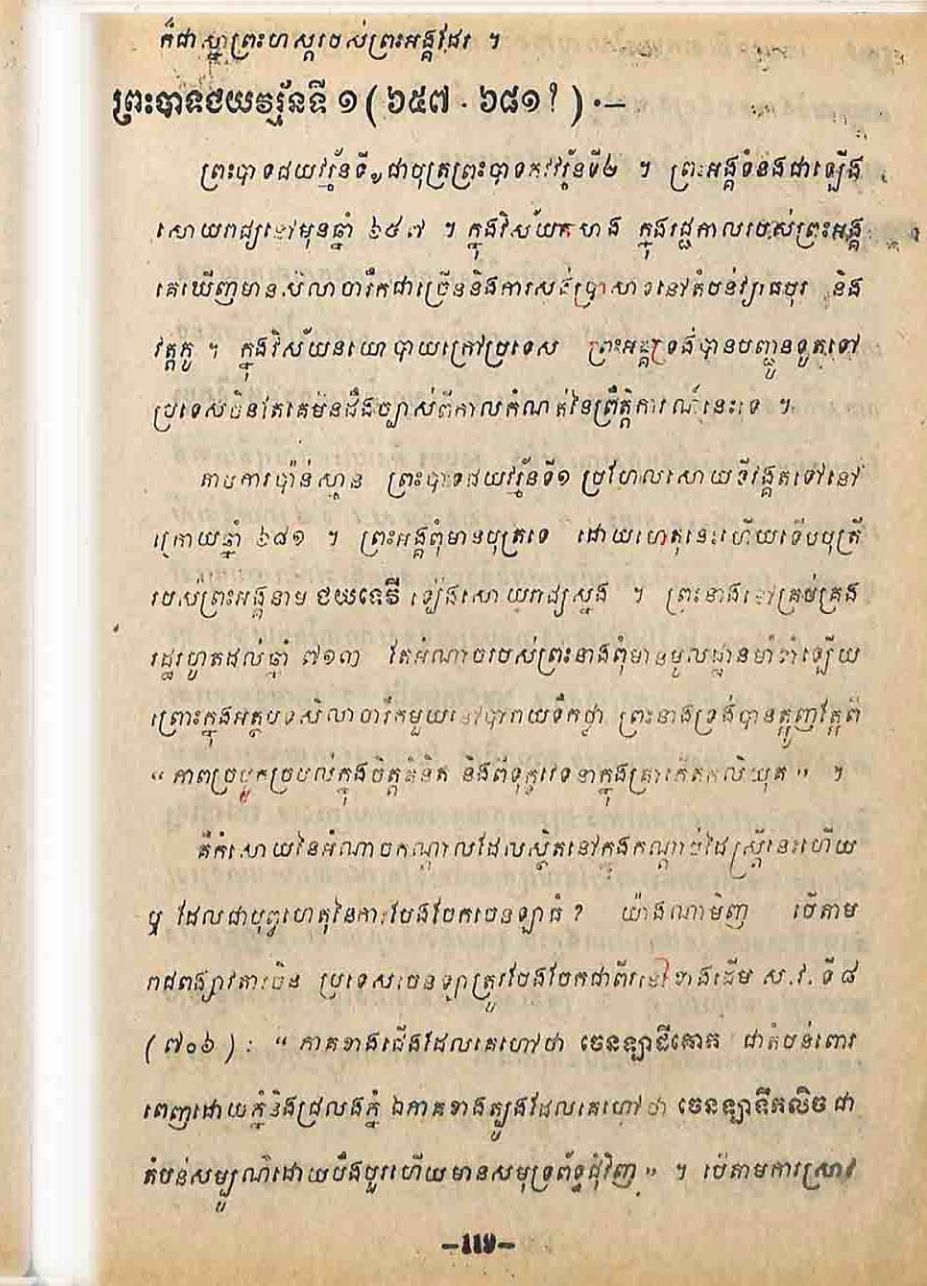 ក៏ជាស្នាព្រះហស្តរបស់ព្រះអង្គដែរ ។
ព្រះបាទជយវរ្ម័នទី ១ ( ៦៥៧ - ៦៨១? ) .—
ព្រះបាទជយវរ្ម័នទី១ជាបុត្រព្រះបាទភវវរ្ម័នទី២ ។ ព្រះអង្គទំនងជាឡើង
សោយរាជ្យនៅមុនឆ្នាំ ៦៥៧ ។ ក្នុងវិស័យ ក្នុងរដ្ឋកាលរបស់ព្រះអង្គ
គេឃើញមានសិលាចារឹកជាច្រើននិងការសង់ប្រាសាទនៅតំបន់វ្យាធបុរ និង
វត្តភូ ។ ក្នុងវិស័យនយោបាយក្រៅប្រទេស ព្រះអង្គទ្រង់បានបញ្ជូនទូតទៅ
ប្រទេសចិនតែគេមិនដឹងច្បាស់ពីកាលកំណត់នៃព្រឹត្តិការណ៍នេះទេ ។
តាមការប៉ាន់ស្មាន ព្រះបាទជយវរ្ម័នទី១ ប្រហែលសោយទីវង្គតទៅនៅ
ក្រោយឆ្នាំ ៦៨១ ។ ព្រះអង្គពុំមានបុត្រទេ ដោយហេតុនេះហើយទើបបុត្រី
របស់ព្រះអង្គនាម ជយទេវី ឡើងសោយរាជ្យស្នង ។ ព្រះនាងនៅគ្រប់គ្រង
រដ្ឋរហូតដល់ឆ្នាំ ៧១៣ តែអំណាចរបស់ព្រះនាងពុំមានមូលដ្ឋានមាំទាំឡើយ
ព្រោះក្នុងអត្ថបទសិលាចារឹកមួយនៅបារាយទឹកថ្លា ព្រះនាងទ្រង់បានត្អូញត្អែពី
“ ភាពច្របូកច្របល់ក្នុងចិត្តគំនិត និងពីទុក្ខវេទនាក្នុងគ្រាកើតកលិយុគ ” ។
គឺកំសោយនៃអំណាចកណ្តាលដែលស្ថិតនៅក្នុងកណ្តាប់ដៃស្ត្រីនេះហើយ
ឬ ដែលជាបុព្វហេតុនៃការបែងចែកចេនឡាធំ? យ៉ាងណាមិញ បើតាម
រាជពង្សាវតារចិន ប្រទេសចេនឡាត្រូវបែងចែកជាពីរនៅខាងដើម ស.វ. ទី៨
( ៧០៦ ) : “ ភាគខាងជើងដែលគេហៅថា ចេនឡាដីគោក ជាតំបន់ពោរ
ពេញដោយភ្នំនិងជ្រលងភ្នំ ឯភាគខាងត្បូងដែលគេហៅថា ចេនឡាទឹកលិច ជា
តំបន់សម្បូណ៌ដោយបឹងបួរហើយមានសមុទ្រព័ទ្ធជុំវិញ ” ។ បើតាមការស្រាវ
—119—